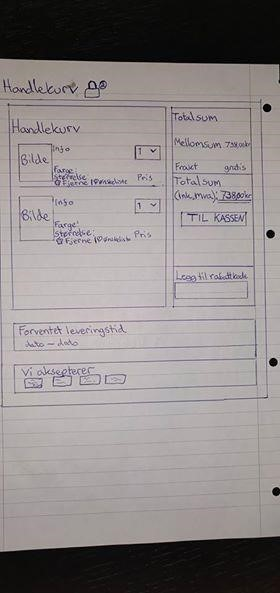 Handlekurv
Handlekurv
Bilde
Info
1
Farge:
Størrelse:
Fjerne | Ønskeliste
Pris
Bilde
Info
1
Farge:
Størrelse:
Fjerne | Ønskeliste
Pris
Totalsum
Mellomsum 738,00kr
Frakt gratis
Totalsum
(ink.mva): 738,00kr
TIL KASSEN
Legg til rabattkode
Forventet leveringstid
dato - dato
Vi aksepterer